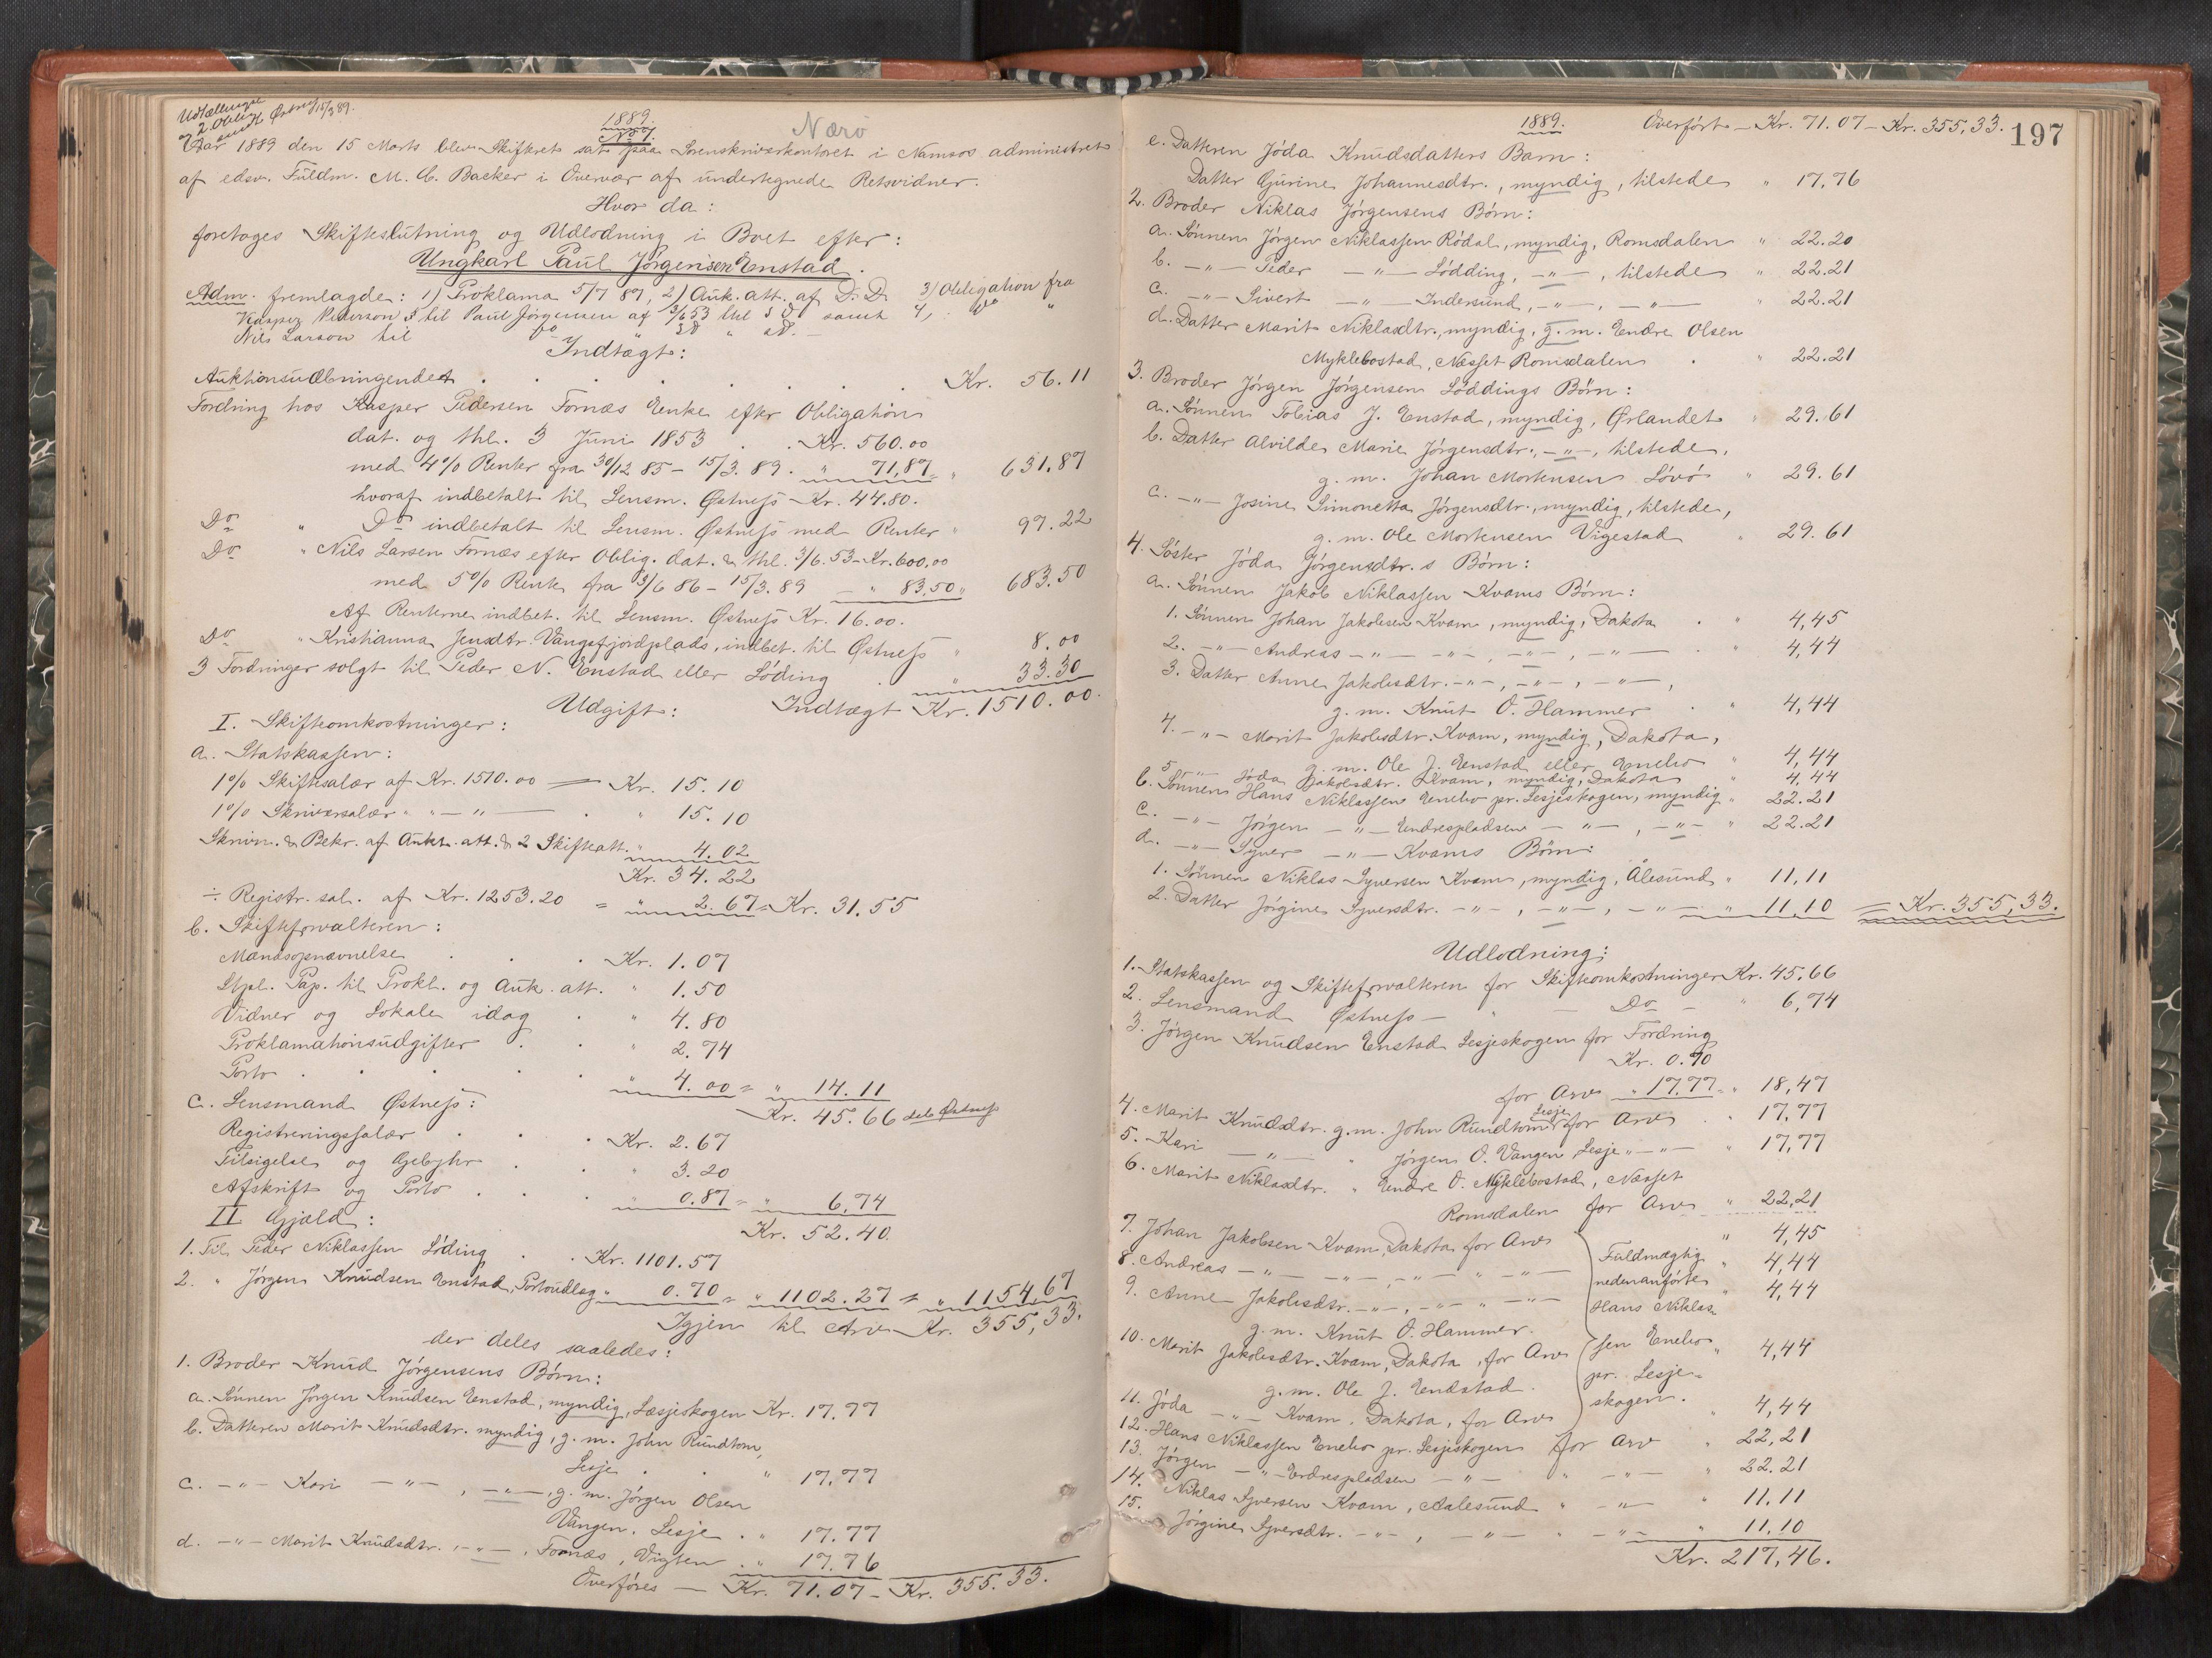 Udtællinge
og 2. Oblig
sendt Østness 15/3 89.
1889.
No 7.
Nærö
Aar 1889 den 15 Marts blev Skifteret sat paa Sorenskriverkontoret i Namsos administret
af edsv. Fuldm. M. C. Backer i Overvær af undertegnede Retsvidner.
Hvor da:
foretoges Skifteslutning og Udlodning i Boet efter:
Ungkarl Paul Jørgensen Enstad.
Adm. fremlagde: 1) Proklama 5/7 87, 2) Auk. att. af D. D. 3) Obligation fra
Kasper Pederson til Paul Jörgensen af 3/6 53 samt 4)
Nils Larson til
Indtægt:
Auktionsudbringendet . . . . . . Kr. 56.11
Fordring hos Kasper Pedersen Fornæs Enke efter Obligation
dat. og thl. 3 Juni 1853 . . Kr. 560.00
med 4% Renter fra 30/12 85 - 15/3. 89. " 71,87 " 631.87
hvoraf indbetalt til Lensm. Østness Kr. 44.80.
Do " Do indbetalt til Lensm. Østness med Renter " 97.22
Do " Nils Larsen Fornæs efter Oblig. dat. & thl. 3/6. 53 - Kr. 600.00
med 5% Rente fra 3/6 86 - 15/3. 89 - " 83,50 " 683.50
Af Renterne indbet. til Lensm. Østness Kr. 16.00.
Do " Kristianna Jensdtr. Vangsfjordplads, indbet. til Østness " 8.00
3 Fordringer solgt til Peder N. Enstad eller Löding . " 33.30
Udgift: Indtægt Kr. 1510.00.
I. Skifteomkostninger:
a. Statskassen:
1% Skiftesalær af Kr. 1510.00 = Kr. 15.10
1% Skriversalær " " - " - . " 15.10
Skrivn. & Bekr. af Aukt. att. & 2 Skifteatt. " 4.02
Kr. 34.22
÷ Registr. sal. af Kr. 1253.20 = " 2.67 = Kr. 31.55
b. Skifteforvalteren:
Mandsopnævnelse . . . Kr. 1.07
Stpl. Pap. til Prokl. og Auk. att. " 1.50
Vidner og Lokale idag . " 4.80
Proklamationsudgifter . . " 2.74
Porto . . . . . " 4.00 = " 14.11
Kr. 45.66
c. Lensmand Østness:
Registreringssalær . . . Kr. 2.67
Tilsigelse og Gebyhr . . " 3.20
Afskrift og Porto . . . " 0.87 = " 6,74
Kr. 52.40.
II Gjæld:
1. Til Peder Niklassen Löding . . Kr. 1101.57
2. " Jörgen Knudsen Enstad, Portoudlæg " 0.70 = " 1102.27 = " 1154,67
Igjen til Arv Kr. 355,33.
der deles saaledes:
1. Broder Knud Jörgensens Børn:
a. Sönnen Jörgen Knudsen Enstad, myndig, Læsjeskogen Kr. 17.77
b. Datteren Marit Knudsdtr. myndig, g. m. John Rundtom,
Lesje . . " 17,77
c. -"- Kari -"-, -"-, g. m. Jörgen Olsen
Vangen, Lesje . " 17.77
d. -"- Marit Knudsdtr. -"-, Fornæs, Vigten . " 17.76
Overføres - Kr. 71.07 - Kr. 355.33.
1889. Overført - Kr. 71.07 - Kr. 355,33.
197
e. Datteren Jóda Knudsdatters Barn:
Datter Gurine Johannesdtr., myndig, tilstede " 17,76
2. Broder Niklas Jörgensens Børn:
a. Sönnen Jörgen Niklassen Rödal, myndig, Romsdalen " 22.20
b. -"- Peder -"- Lödding, -"-, tilstede " 22.21
c. -"- Sivert -"- Indersund, -"-, -"- " 22.21
d. Datter Marit Niklasdtr., myndig, g. m. Endre Olsen
Myklebostad, Næsset Romsdalen . " 22.21
3. Broder Jörgen Jörgensen Løddings Børn:
a. Sönnen Tobias J. Enstad, myndig, Ørlandet " 29.61
b. Datter Alvilde Marie Jörgensdtr., -"-, tilstede,
g. m. Johan Mortensen Lövö " 29.61
c. -"- Josine Simonetta Jörgensdtr., myndig, tilstede,
g. m. Ole Mortensen Vigestad " 29.61
4. Söster Jóda Jörgensdtr.s Børn:
a. Sönnen Jakob Niklassen Kvams Børn:
1. Sönnen Johan Jakobsen Kvam, myndig, Dakota . " 4,45
2. -"- Andreas -"- -"-, -"-, -"- . " 4,44
3. Datter Anne Jakobsdtr. -"-, -"-, -"-,
g. m. Knut O. Hammer . " 4,44
4. -"- Marit Jakobsdtr. Kvam, myndig, Dakota,
g. m. Ole J. Enstad eller Enebo " 4,44
5. -"- Jóda Jakobsdtr. Kvam, myndig, Dakota " 4.44
b. Sönnen Hans Niklassen Enebo pr. Lesjeskogen, myndig " 22.21
c. -"- Jörgen -"- Endrespladsen -"-, -"- " 22.21
d. -"- Syver -"- Kvams Børn:
1. Sönnen Niklas Syversen Kvam, myndig, Ålesund " 11,11
2. Datter Jörgine Syversdtr. -"-, -"-, -"- " 11,10 = Kr. 355,33.
Udlodning:
1. Statskassen og Skifteforvalteren for Skifteomkostninger Kr. 45.66
2. Lensmand Østness - " - Do - " 6,74
3. Jörgen Knudsen Enstad Lesjeskogen for Fordring
Kr. 0.70
for Arv " 17.77 = " 18,47
4. Marit Knudsdtr. g. m. John Rundtom Lesje for Arv . " 17,77
5. Kari -"- " Jörgen O. Vangen Lesje " -"- " 17,77
6. Marit Niklasdtr. " Endre O. Myklebostad, Næsset
Romsdalen for Arv " 22,21
7. Johan Jakobsen Kvam, Dakota for Arv " 4,45
8. Andreas -"- -"-, -"- " -"- Fuldmægtig " 4,44
9. Anne Jakobsdtr. -"-, -"- " -"- nedenanførte " 4,44
g. m. Knut O. Hammer. Hans Niklas-
10. Marit Jakobsdtr. Kvam, Dakota, for Arv sen Enebo " 4,44
g. m. Ole J. Endstad. pr. Lesje-
11. Jóda -"- Kvam, Dakota, for Arv skogen. " 4,44
12. Hans Niklassen Enebo pr. Lesjeskogen for Arv " 22,21
13. Jörgen -"- Endrespladsen -"- " -"- " 22.21
14. Niklas Syversen Kvam, Aalesund " -"- " 11.11
15. Jörgine Syversdtr. -"-, -"- " -"- " 11.10
Kr. 217,46.